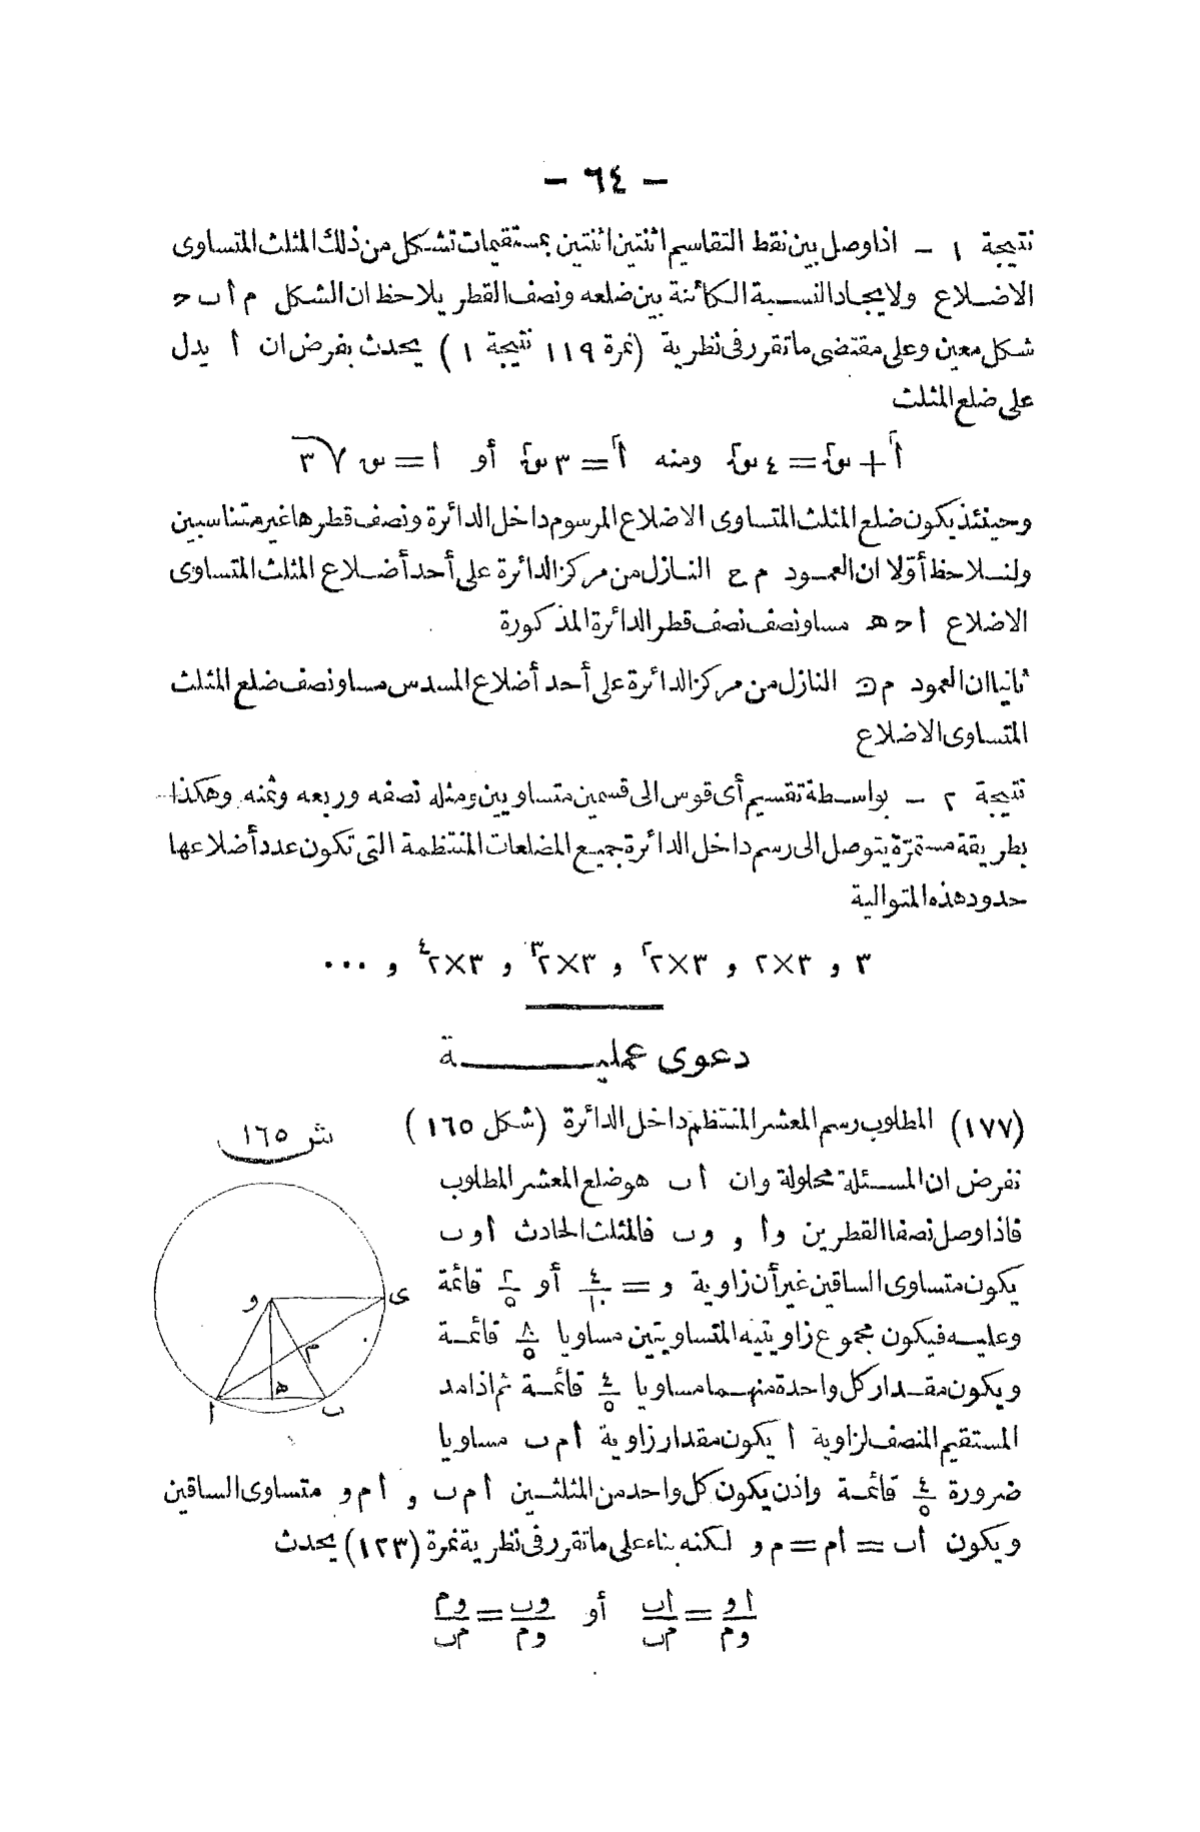 — ٦٤ —
نتيجة ١ — اذا وصل بين نقط التقاسيم اثنتين اثنتين بمستقيمات تشكل من ذلك المثلث المتساوى
الاضلاع ولايجاد النسبة الكائنة بين ضلعه ونصف القطر يلاحظ ان الشكل م أ ب ح
شكل معين وعلى مقتضى ما تقرر فى نظرية (نمرة ١١٩ نتيجة ١) يحدث بفرض ان أ يدل
على ضلع المثلث
أ٢ + س٢ = ٤ س٢ ومنه أ٢ = ٣ س٢ أو ا = س √٣
وحينئذ يكون ضلع المثلث المتساوى الاضلاع المرسوم داخل الدائرة ونصف قطرها غير متناسبين
ولنلاحظ أوّلا ان العمود م ع النازل من مركز الدائرة على أحد أضلاع المثلث المتساوى
الاضلاع ا ح ه مساو نصف نصف قطر الدائرة المذكورة
ثانيا ان العمود م ن النازل من مركز الدائرة على أحد أضلاع المسدس مساو نصف ضلع المثلث
المتساوى الاضلاع
نتيجة ٢ — بواسطة تقسيم أى قوس الى قسمين متساويين ومثله نصفه وربعه وثمنه وهكذا
بطريقة مستمرّة يتوصل الى رسم داخل الدائرة جميع المضلعات المنتظمة التى تكون عدد أضلاعها
حدود هذه المتوالية
٣ و ٣×٢ و ٣×٢٢ و ٣×٢٣ و ٣×٢٤ و ...
دعوى عمليـــــة
(١٧٧) المطلوب رسم المعشر المنتظم داخل الدائرة (شكل ١٦٥)
ش ١٦٥
نفرض ان المسئلة محلولة وان أ ب هو ضلع المعشر المطلوب
فاذا وصل نصفا القطرين و أ , و ب فالمثلث الحادث أ و ب
يكون متساوى الساقين غير أن زاوية و = ٤/١٠ أو ٢/٥ قائمة
وعليه فيكون مجموع زاويتيه المتساويتين مساويا ٨/٥ قائمة
ويكون مقدار كل واحدة منهما مساويا ٤/٥ قائمة ثم اذا مد
المستقيم المنصف لزاوية أ يكون مقدار زاوية أ م ب مساويا
ضرورة ٤/٥ قائمة واذن يكون كل واحد من المثلثين أ م ب , أ م و متساوى الساقين
ويكون أ ب = أ م = م و لكنه بناء على ما تقرر فى نظرية نمرة (١٢٣) يحدث
ا و/و م = أ ب/م ب أو و ب/و م = و م/م ب
و
ى
م
ه
ا
ب